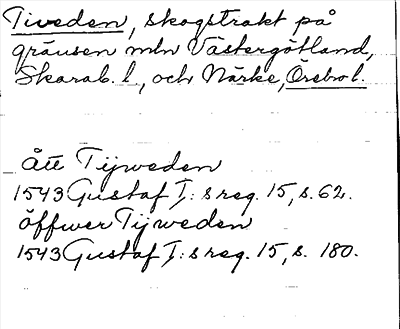 Tiveden, skogstrakt på
gränsen mln Västergötland,
Skarab. l., och Närke, Örebro l.
ått Tijweden
1543 Gustaf I:s reg. 15, s. 62.
öffwer Tijweden
1543 Gustaf I:s reg. 15, s. 180.